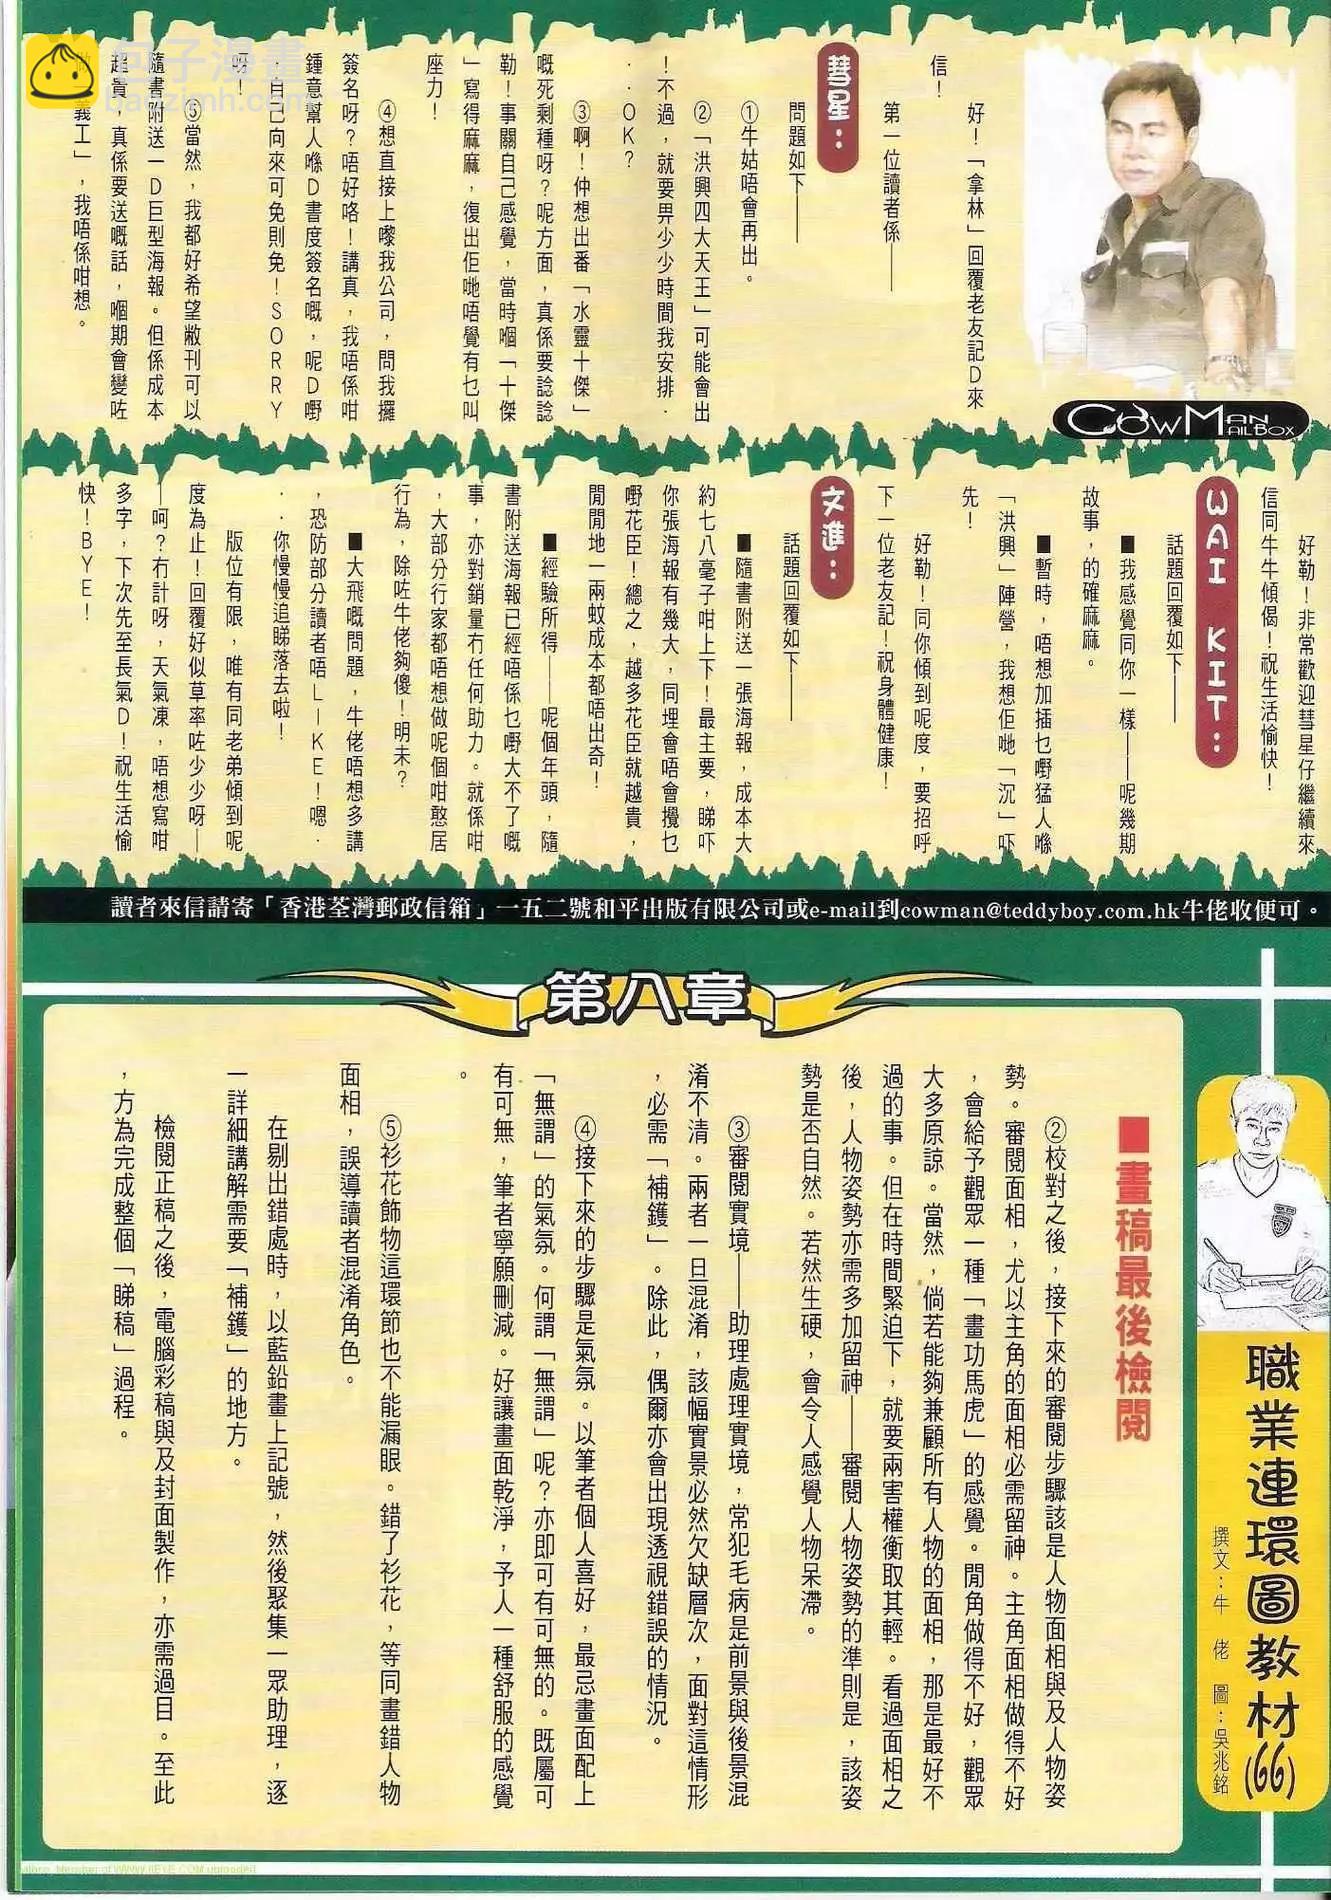 包子漫畫
baozimh.com
COWMAN MAILBOX
好！「拿林」回覆老友記D來
信！
第一位讀者係——
彗星：
問題如下——
①牛姑唔會再出。
②「洪興四大天王」可能會出
！不過，就要畀少少時間我安排．
．．OK？
③啊！仲想出番「水靈十傑」
嘅死剩種呀？呢方面，真係要諗諗
勒！事關自己感覺，當時嗰「十傑
」寫得麻麻，復出佢哋唔覺有乜叫
座力！
④想直接上嚟我公司，問我攞
簽名呀？唔好咯！講真，我唔係咁
鍾意幫人喺D書度簽名嘅，呢D嘢
，自己向來可免則免！SORRY
呀！
⑤當然，我都好希望敝刊可以
隨書附送一D巨型海報。但係成本
超貴，真係要送嘅話，嗰期會變咗
做「義工」，我唔係咁想。
好勒！非常歡迎彗星仔繼續來
信同牛牛傾偈！祝生活愉快！
WAI KIT：
話題回覆如下——
■我感覺同你一樣——呢幾期
故事，的確麻麻。
■暫時，唔想加插乜嘢猛人喺
「洪興」陣營，我想佢哋「沉」吓
先！
好勒！同你傾到呢度，要招呼
下一位老友記！祝身體健康！
文進：
話題回覆如下——
■隨書附送一張海報，成本大
約七八毫子咁上下！最主要，睇吓
你張海報有幾大，同埋會唔會攪乜
嘢花臣！總之，越多花臣就越貴，
閒閒地一兩蚊成本都唔出奇！
■經驗所得——呢個年頭，隨
書附送海報已經唔係乜嘢大不了嘅
事，亦對銷量冇任何助力。就係咁
，大部分行家都唔想做呢個咁憨居
行為，除咗牛佬夠傻！明未？
■大飛嘅問題，牛佬唔想多講
，恐防部分讀者唔LIKE！嗯．
．．你慢慢追睇落去啦！
版位有限，唯有同老弟傾到呢
度為止！回覆好似草率咗少少呀—
—呵？冇計呀，天氣凍，唔想寫咁
多字，下次先至長氣D！祝生活愉
快！BYE！
讀者來信請寄「香港荃灣郵政信箱」一五二號和平出版有限公司或e-mail到cowman@teddyboy.com.hk牛佬收便可。
第八章
職業連環圖教材(66)
撰文：牛佬 圖：吳兆銘
■畫稿最後檢閱
②校對之後，接下來的審閱步驟該是人物面相與及人物姿
勢。審閱面相，尤以主角的面相必需留神。主角面相做得不好
，會給予觀眾一種「畫功馬虎」的感覺。閒角做得不好，觀眾
大多原諒。當然，倘若能夠兼顧所有人物的面相，那是最好不
過的事。但在時間緊迫下，就要兩害權衡取其輕。看過面相之
後，人物姿勢亦需多加留神——審閱人物姿勢的準則是，該姿
勢是否自然。若然生硬，會令人感覺人物呆滯。
③審閱實境——助理處理實境，常犯毛病是前景與後景混
淆不清。兩者一旦混淆，該幅實景必然欠缺層次，面對這情形
，必需「補鑊」。除此，偶爾亦會出現透視錯誤的情況。
④接下來的步驟是氣氛。以筆者個人喜好，最忌畫面配上
「無謂」的氣氛。何謂「無謂」呢？亦即可有可無的。既屬可
有可無，筆者寧願刪減。好讓畫面乾淨，予人一種舒服的感覺
。
⑤衫花飾物這環節也不能漏眼。錯了衫花，等同畫錯人物
面相，誤導讀者混淆角色。
在剔出錯處時，以藍鉛畫上記號，然後聚集一眾助理，逐
一詳細講解需要「補鑊」的地方。
檢閱正稿之後，電腦彩稿與及封面製作，亦需過目。至此
，方為完成整個「睇稿」過程。